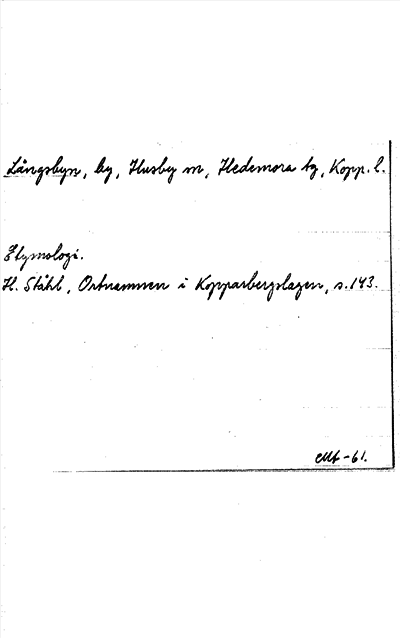 Långsbyn, by, Husby sn, Hedemora tg, Kopp. l.
Etymologi.
H. Ståhl, Ortnamnen i Kopparbergslagen, s. 143.
-61.